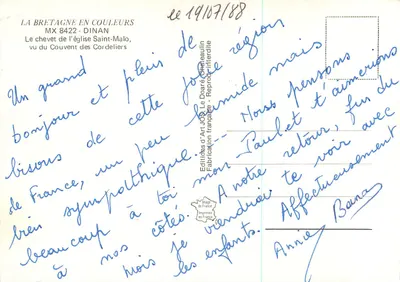 LA BRETAGNE EN COULEURS
MX 8422 - DINAN
Le chevet de l'église Saint-Malo,
vu du Couvent des Cordeliers
le 19/07/88
Un grand
bonjour et plein de
bisous de cette jolie région
de France, un peu humide mais
bien sympathique. Nous pensons
beaucoup à toi mon Paul et t'aimerions
à nos côtés. A notre retour, fin du
mois je viendrai te voir avec
les enfants. Affectueusement
Annie
Editions d'Art JOS Le Doaré Chateaulin
Fabrication française - Reproduction interdite